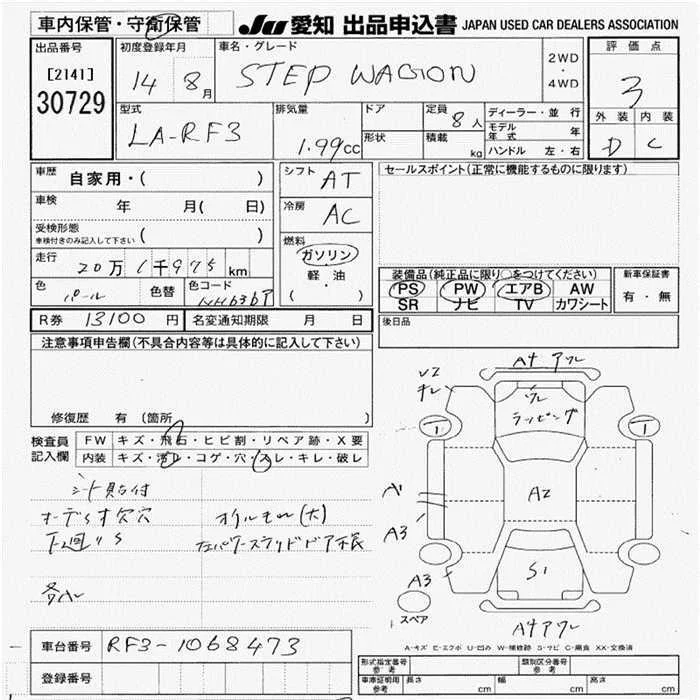 車内保管・守衛保管
JU 愛知 出品申込書 JAPAN USED CAR DEALERS ASSOCIATION
出品番号
[2141]
30729
初度登録年月
14 8月
車名・グレード
STEP WAGON
2WD
・
4WD
評価点
3
外装 内装
D C
型式
LA-RF3
排気量
1.99cc
ドア
形状
定員
8人
積載
kg
ディーラー・並行
モデル年式 年
ハンドル 左・右
車歴
自家用・( )
車検 年 月( 日)
受検形態
車検付きのみ記入して下さい ( )
走行
20万1千975km
色
パール
色替
色コード
NH636P
シフト
AT
冷房
AC
燃料
ガソリン
軽・油
( ・ )
セールスポイント(正常に機能するものに限ります)
装備品(純正品に限り○をつけてください)
PS PW エアB AW
SR ナビ TV カワシート
新車保証書
有・無
R券 13100円
名変通知期限 月 日
後日品
注意事項申告欄(不具合内容等は具体的に記入して下さい)
修復歴 有(箇所
検査員記入欄
FW キズ・飛石・ヒビ割・リペア跡・X要
内装 キズ・汚レ・コゲ・穴・スレ・キレ・破レ
オーディオ欠穴
オイルモレ(大)
下廻りS
左パワースライドドア不良
A4 アワレ
ラッピング
1
1
A1
A3
A2
A3
S1
スペア
A4アワレ
A-キズ E-エクボ U-凹み W-補修跡 S-サビ C-腐食 XX-交換済
車台番号 RF3-1068473
登録番号
形式指定番号 参考
類別区分番号 参考
車庫証明用 参考 長さ cm 幅 cm 高さ cm